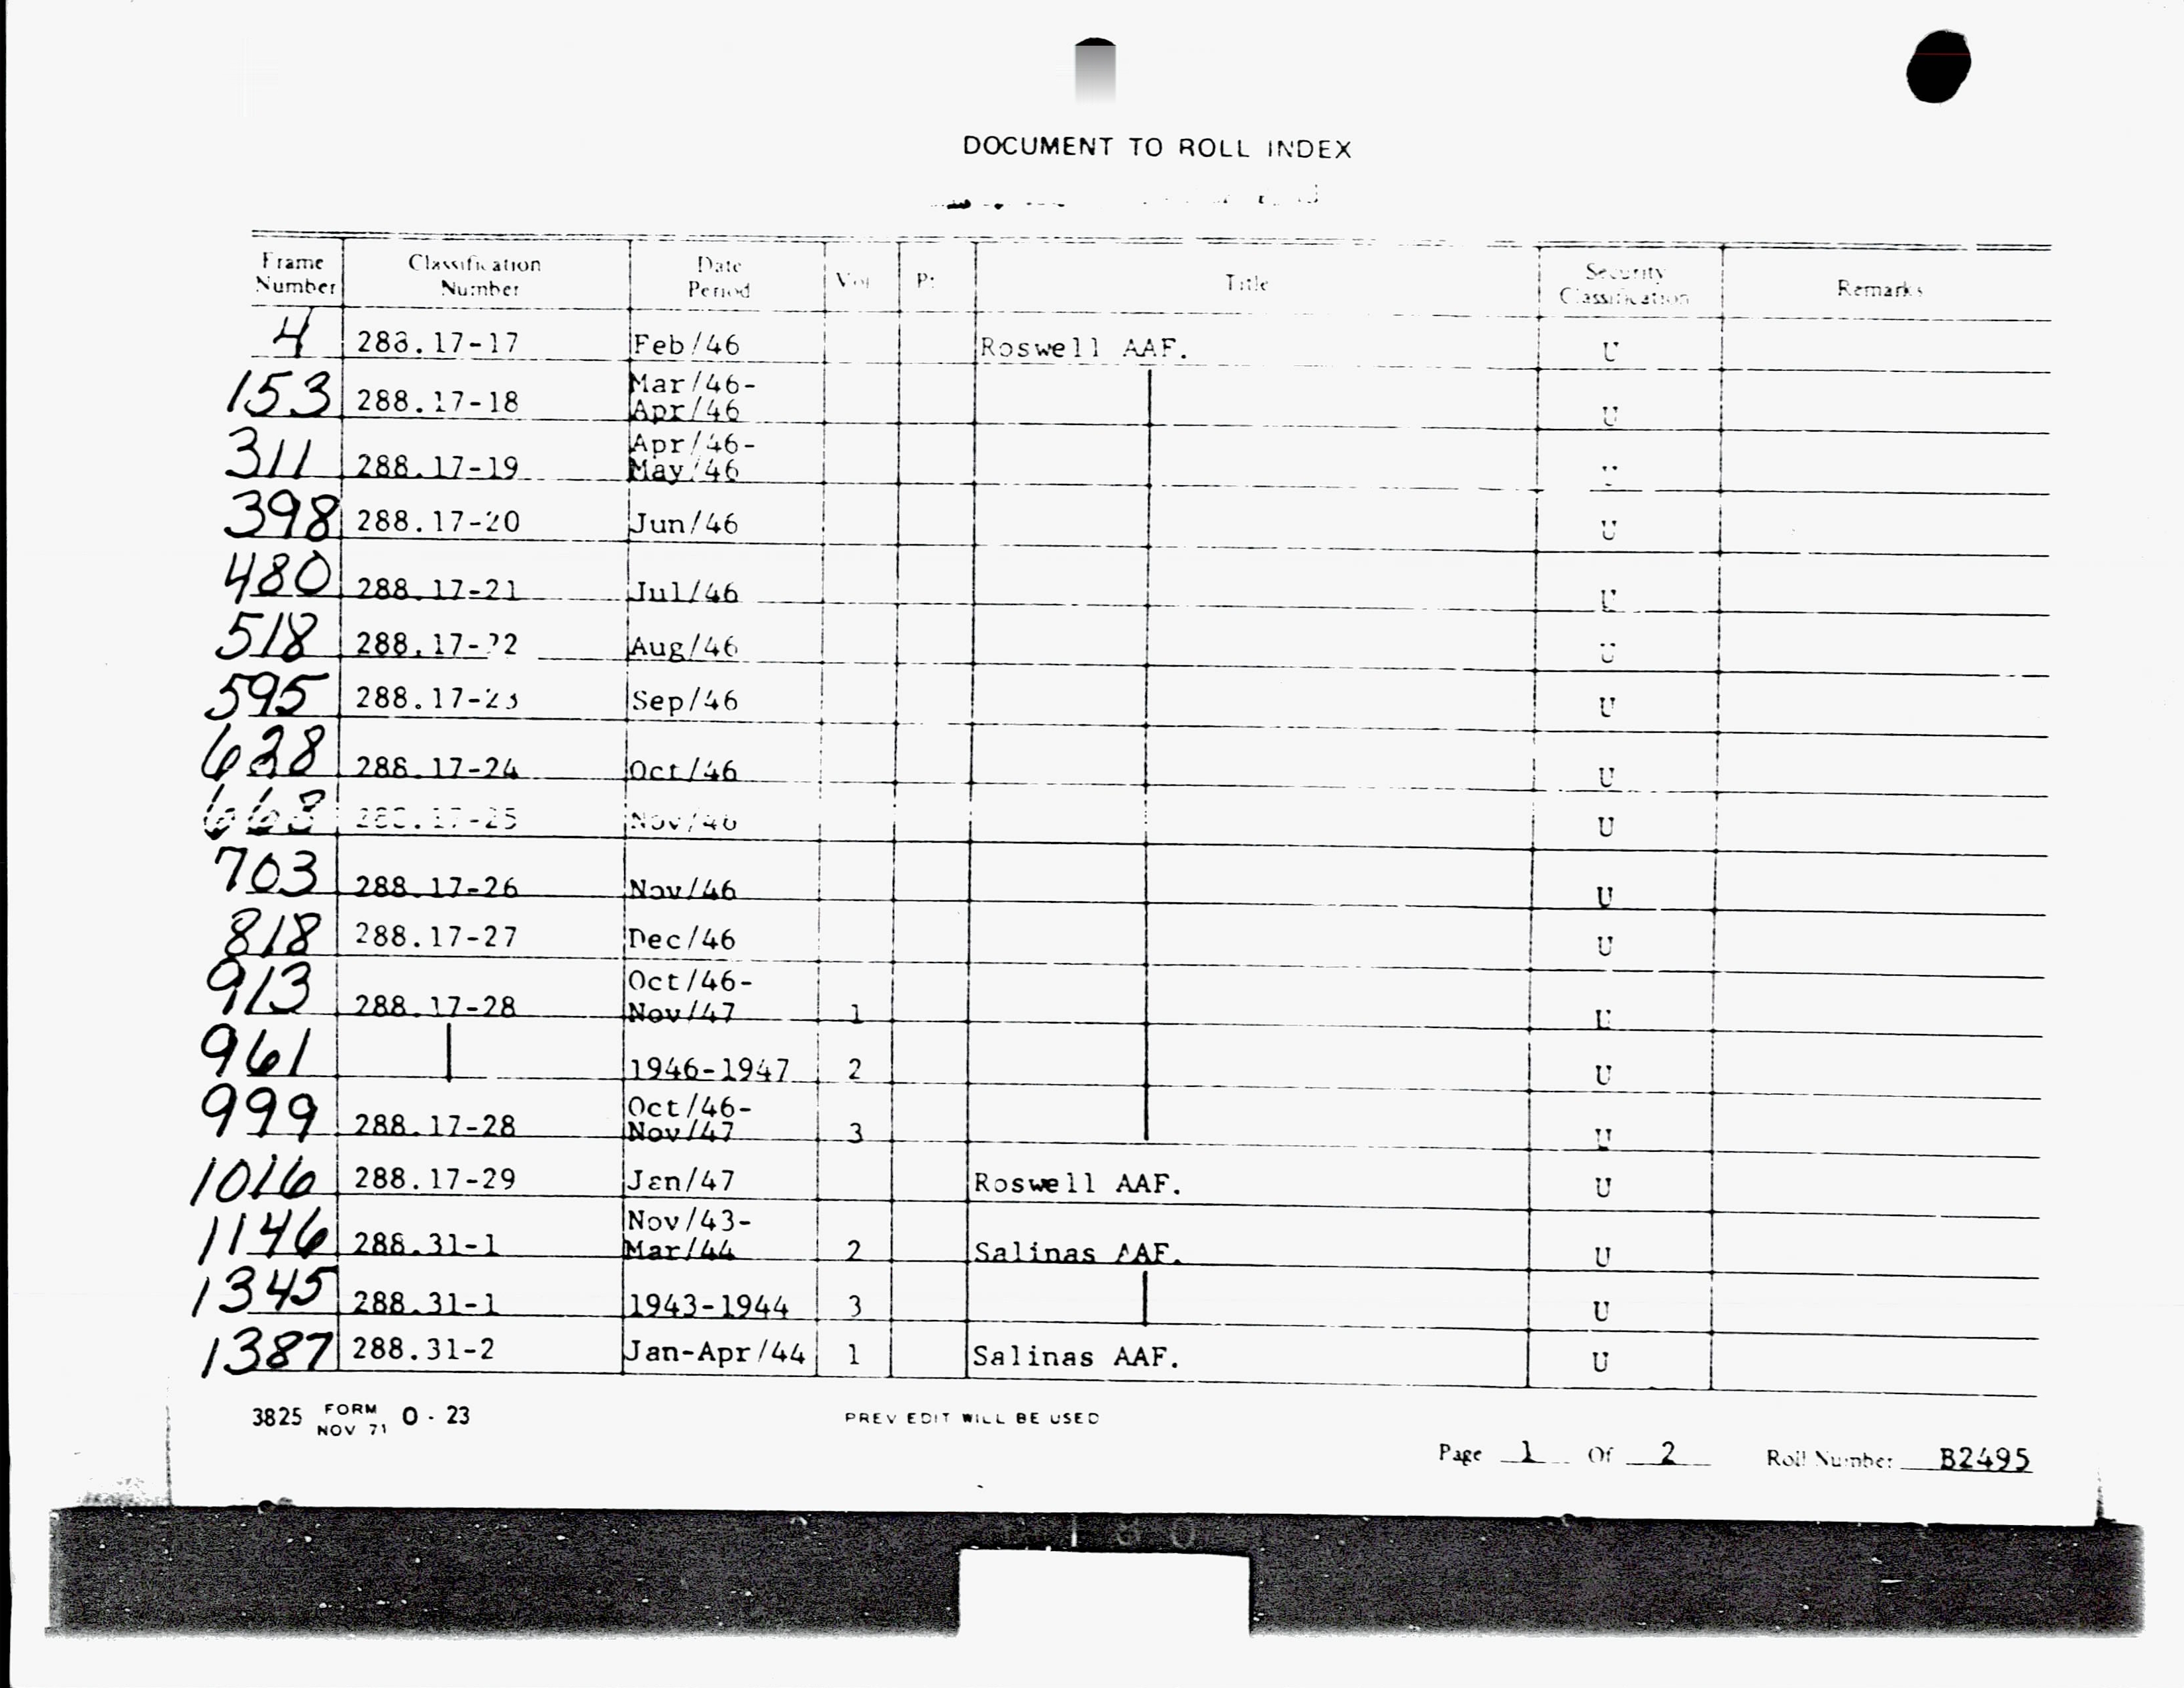 DOCUMENT TO ROLL INDEX
Frame Number Classification Number Date Period Vol Pt Title Security Classification Remarks
4 288.17-17 Feb/46 Roswell AAF. U
153 288.17-18 Mar/46-Apr/46 U
311 288.17-19 Apr/46-May/46 U
398 288.17-20 Jun/46 U
480 288.17-21 Jul/46 U
518 288.17-22 Aug/46 U
595 288.17-23 Sep/46 U
628 288.17-24 Oct/46 U
663 288.17-25 Nov/46 U
703 288.17-26 Nov/46 U
818 288.17-27 Dec/46 U
913 288.17-28 Oct/46-Nov/47 1 U
961 1946-1947 2 U
999 288.17-28 Oct/46-Nov/47 3 U
1016 288.17-29 Jan/47 Roswell AAF. U
1146 288.31-1 Nov/43-Mar/44 2 Salinas AAF. U
1345 288.31-1 1943-1944 3 U
1387 288.31-2 Jan-Apr/44 1 Salinas AAF. U
3825 FORM NOV 71 0-23 PREV EDIT WILL BE USED
Page 1 Of 2 Roll Number B2495